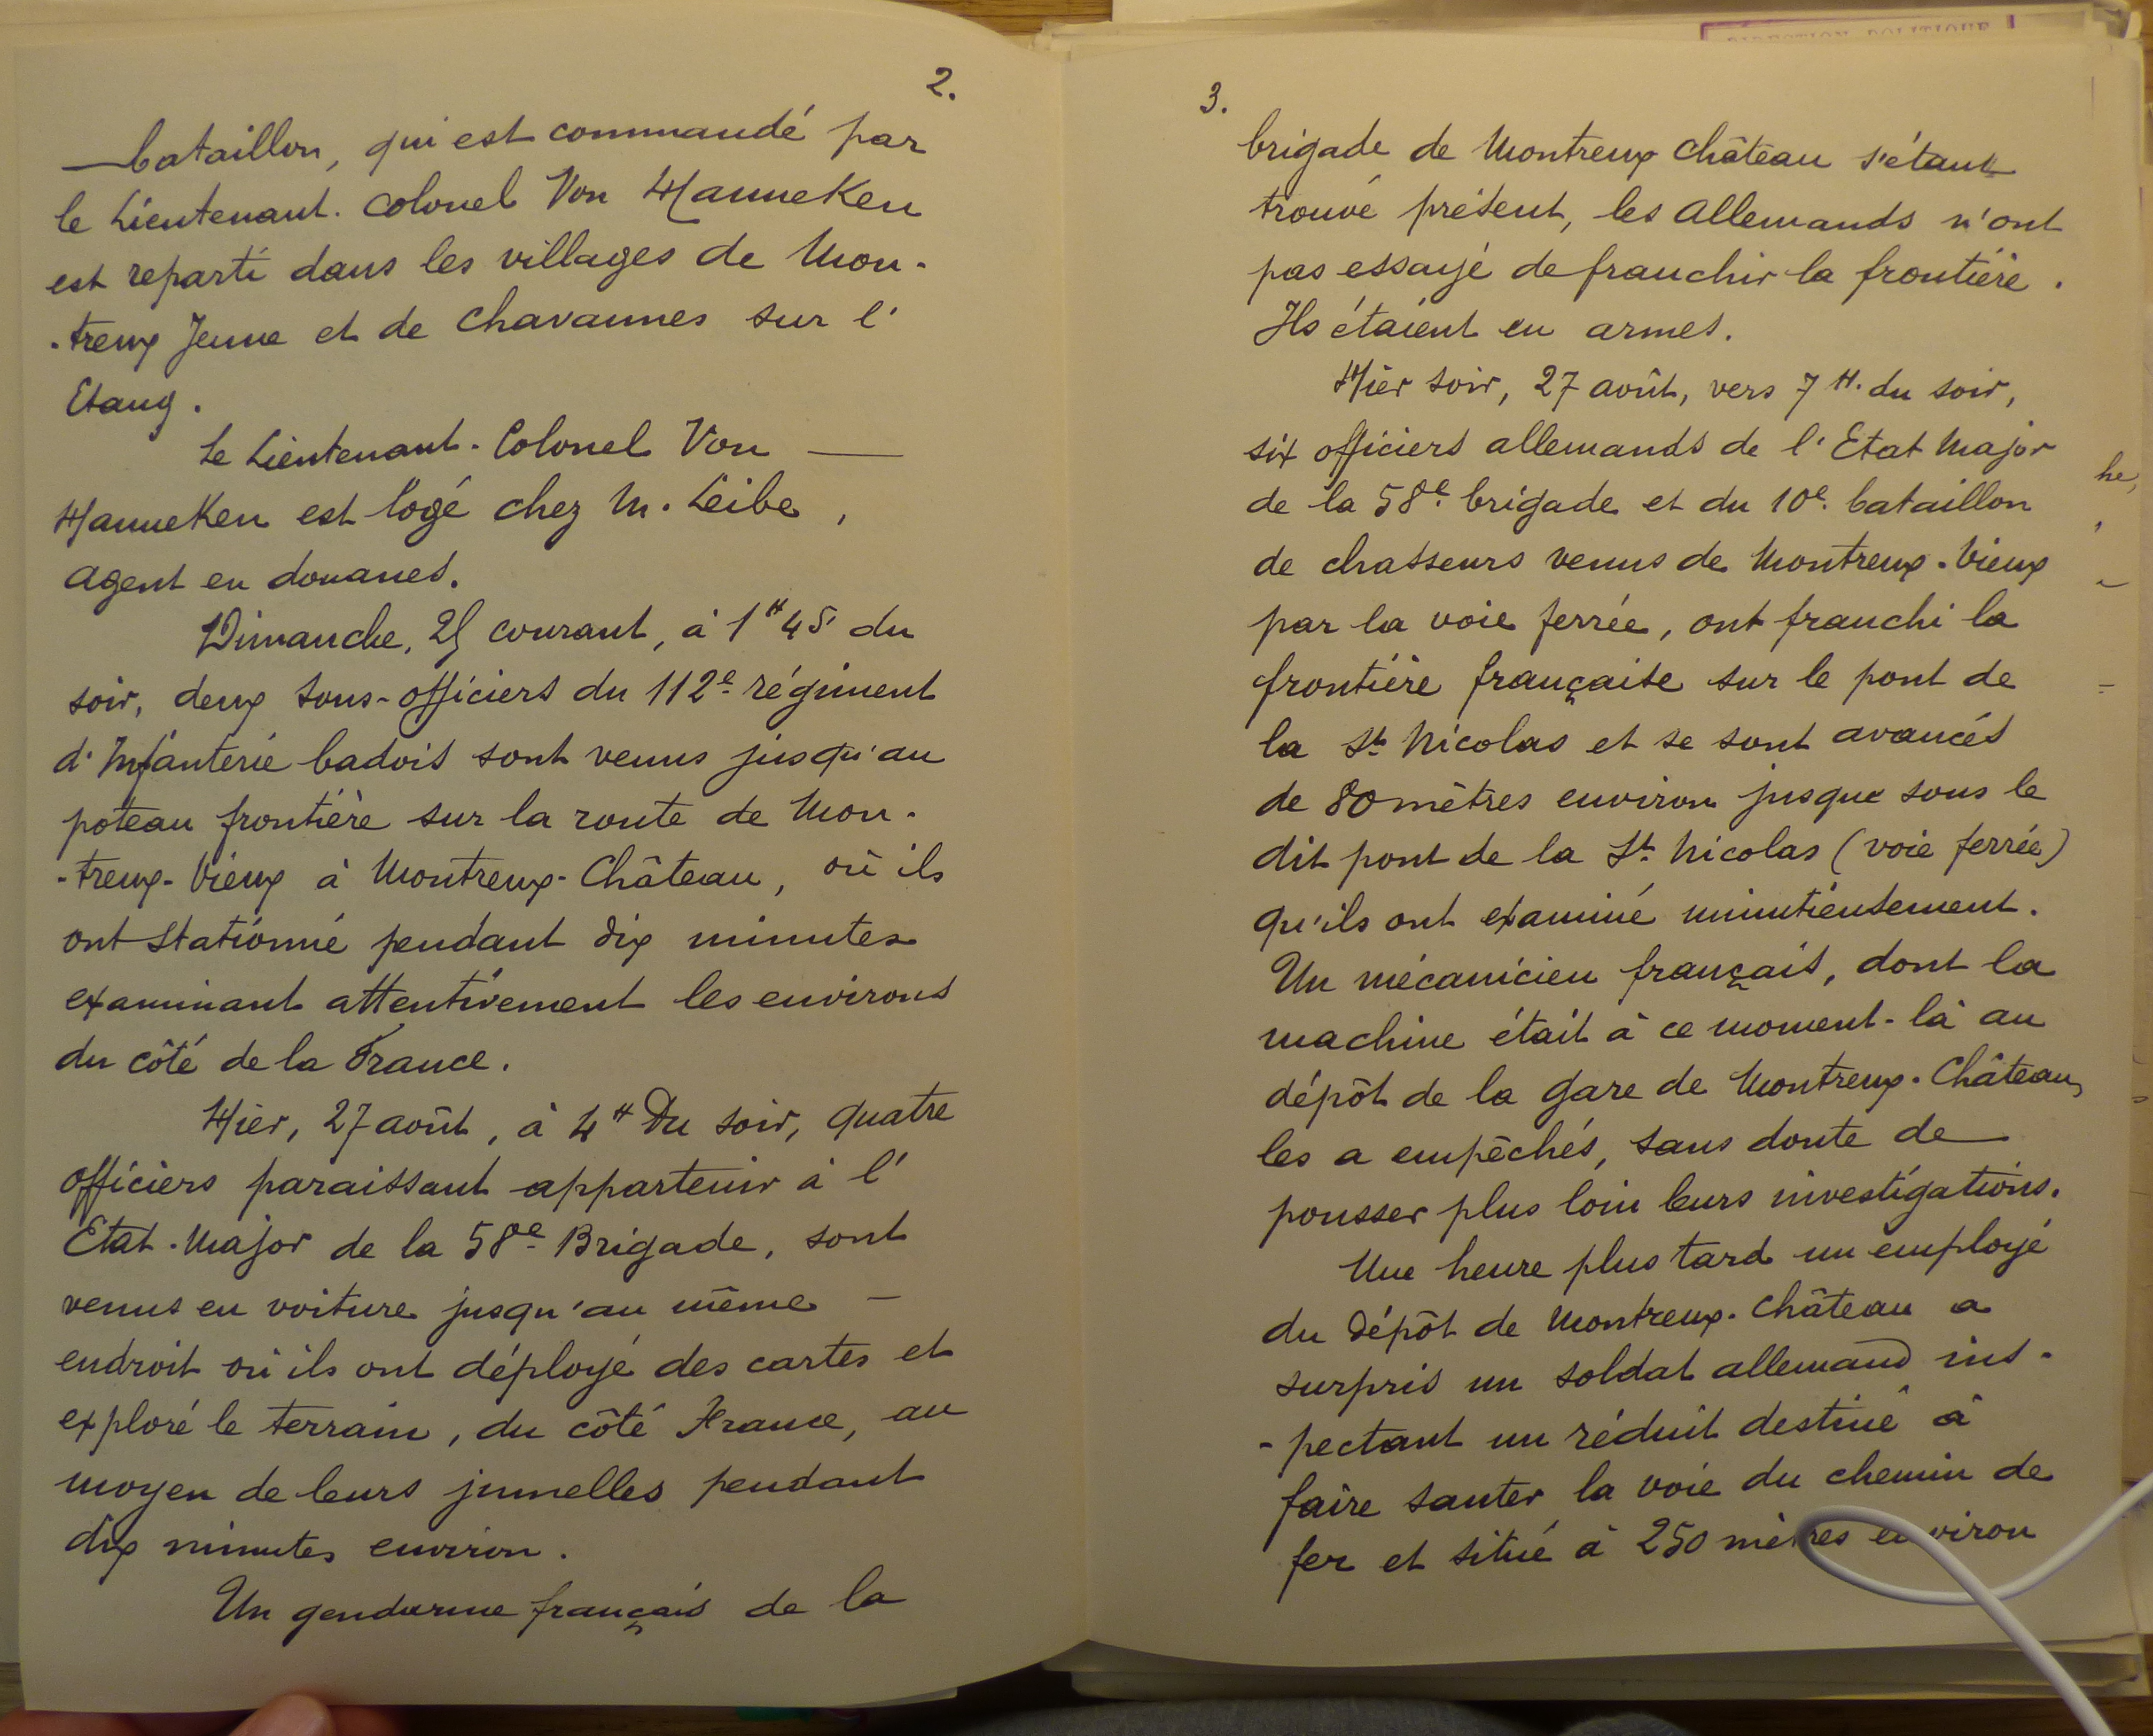 2.
bataillon, qui est commandé par
le Lieutenant. Colonel Von Hanneken
est reparti dans les villages de Mon-
-treux Jeune et de Chavannes sur l'
Etang.
Le Lieutenant-Colonel Von
Hanneken est logé chez M. Leibe,
agent en douanes.
Dimanche, 25 courant, à 1H45 du
soir, deux sous-officiers du 112e régiment
d'Infanterie badois sont venus jusqu'au
poteau frontière sur la route de Mon-
-treux-Vieux à Montreux-Château, où ils
ont stationné pendant dix minutes
examinant attentivement les environs
du côté de la France.
Hier, 27 août, à 4H du soir, quatre
officiers paraissant appartenir à l'
Etat-Major de la 58e Brigade, sont
venus en voiture jusqu'au même
endroit où ils ont déployé des cartes et
exploré le terrain, du côté France, au
moyen de leurs jumelles pendant
dix minutes environ.
Un gendarme français de la
3.
brigade de Montreux Château s'étant
trouvé présent, les allemands n'ont
pas essayé de franchir la frontière.
Ils étaient en armes.
Hier soir, 27 août, vers 7 H. du soir,
six officiers allemands de l'Etat Major
de la 58e brigade et du 10e bataillon
de chasseurs venus de Montreux-Vieux
par la voie ferrée, ont franchi la
frontière française sur le pont de
la St Nicolas et se sont avancés
de 80 mètres environ jusque sous le
dit pont de la St Nicolas (voie ferrée)
qu'ils ont examiné minutieusement.
Un mécanicien français, dont la
machine était à ce moment-là au
dépôt de la gare de Montreux-Château,
les a empêchés, sans doute de
pousser plus loin leurs investigations.
Une heure plus tard un employé
du dépôt de Montreux-Château a
surpris un soldat allemand ins-
-pectant un réduit destiné à
faire sauter la voie du chemin de
fer et situé à 250 mètres environ
he,
DIRECTION POLITIQUE